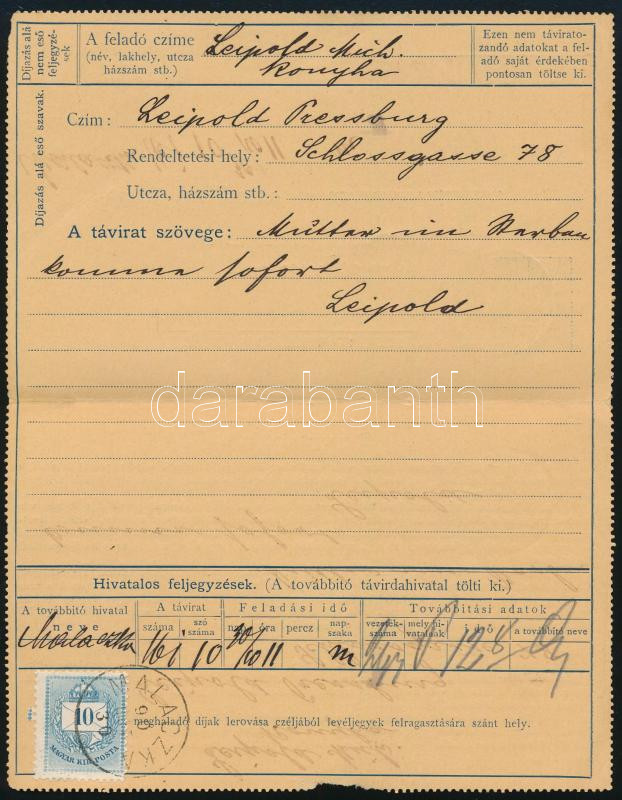 Díjazás alá nem eső feljegyzések
A feladó czíme
(név, lakhely, utcza házszám stb.)
Leipold Mich.
Konyha
Ezen nem távirato-
zandó adatokat a fel-
adó saját érdekében
pontosan töltse ki.
Díjazás alá eső szavak.
Czím: Leipold Pressburg
Rendeltetési hely: Schlossgasse 78
Utcza, házszám stb.:
A távirat szövege: Mutter im Sterben
komme sofort
Leipold
darabanth
Hivatalos feljegyzések. (A továbbitó távirdahivatal tölti ki.)
A továbbitó hivatal neve
A távirat
száma
szó száma
Feladási idő
nap
óra
percz
napszaka
Továbbitási adatok
vezeték-száma
mely hivatalnak
idő
a továbbitó neve
Malaczka 161 10 30/10 11 m
meghaladó díjak lerovása czéljából levéljegyek felragasztására szánt hely.
10
MAGYAR KIR. POSTA
MALACZKA
90
30